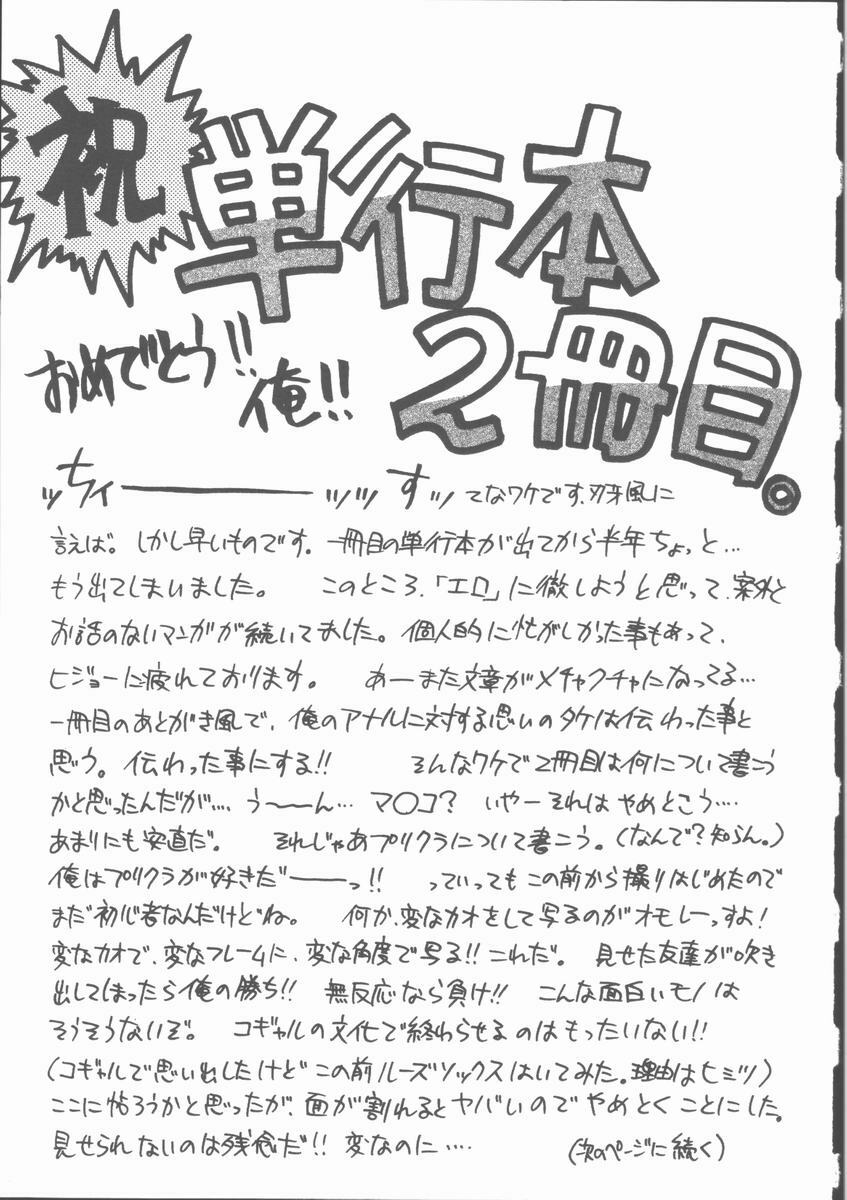 祝
単行本
2冊目。
おめでとう!!
俺!!
ッちィーーーッッすッ てなワケです、刃牙風に
言えば。しかし早いものです。一冊目の単行本が出てから半年ちょっと…
もう出てしまいました。 このところ、「エロ」に徹しようと思って、案外と
お話のないマンガが続いてました。個人的に忙がしかった事もあって、
ヒジョーに疲れております。 あーまた文章がメチャクチャになってる…
一冊目のあとがき風で、俺のアナルに対する思いのタケは伝わった事と
思う。伝わった事にする!! そんなワケで2冊目は何について書こう
かと思ったんだが…. う〜〜ん… マ○コ? いやーそれはやめとこう….
あまりにも安直だ。 それじゃあプリクラについて書こう。(なんで?知らん。)
俺はプリクラが好きだーーっ!! っていってもこの前から撮りはじめたので
まだ初心者なんだけどね。 何か、変なカオをして写るのがオモレーっすよ!
変なカオで、変なフレームに、変な角度で写る!!これだ。 見せた友達が吹き
出してしまったら俺の勝ち!! 無反応なら負け!! こんな面白いモノは
そうそうないぞ。 コギャルの文化で終わらせるのはもったいない!!
(コギャルで思い出したけどこの前ルーズソックスはいてみた。理由はヒミツ)
ここに帖ろうかと思ったが、面が割れるとヤバいのでやめとくことにした。
見せられないのは残念だ!! 変なのに….
(次のページに続く)